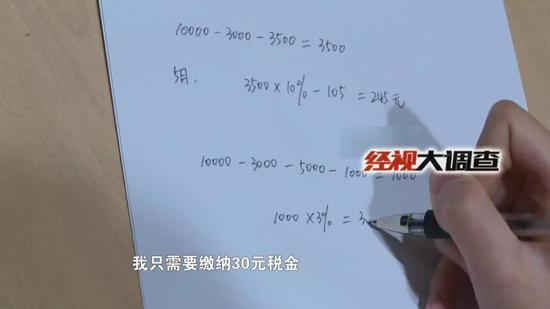 10000-3000-3500=3500
5月:
3500×10%-105=245元
经视大调查
10000-3000-5000-1000=1000
1000×3%=30
我只需要缴纳30元税金